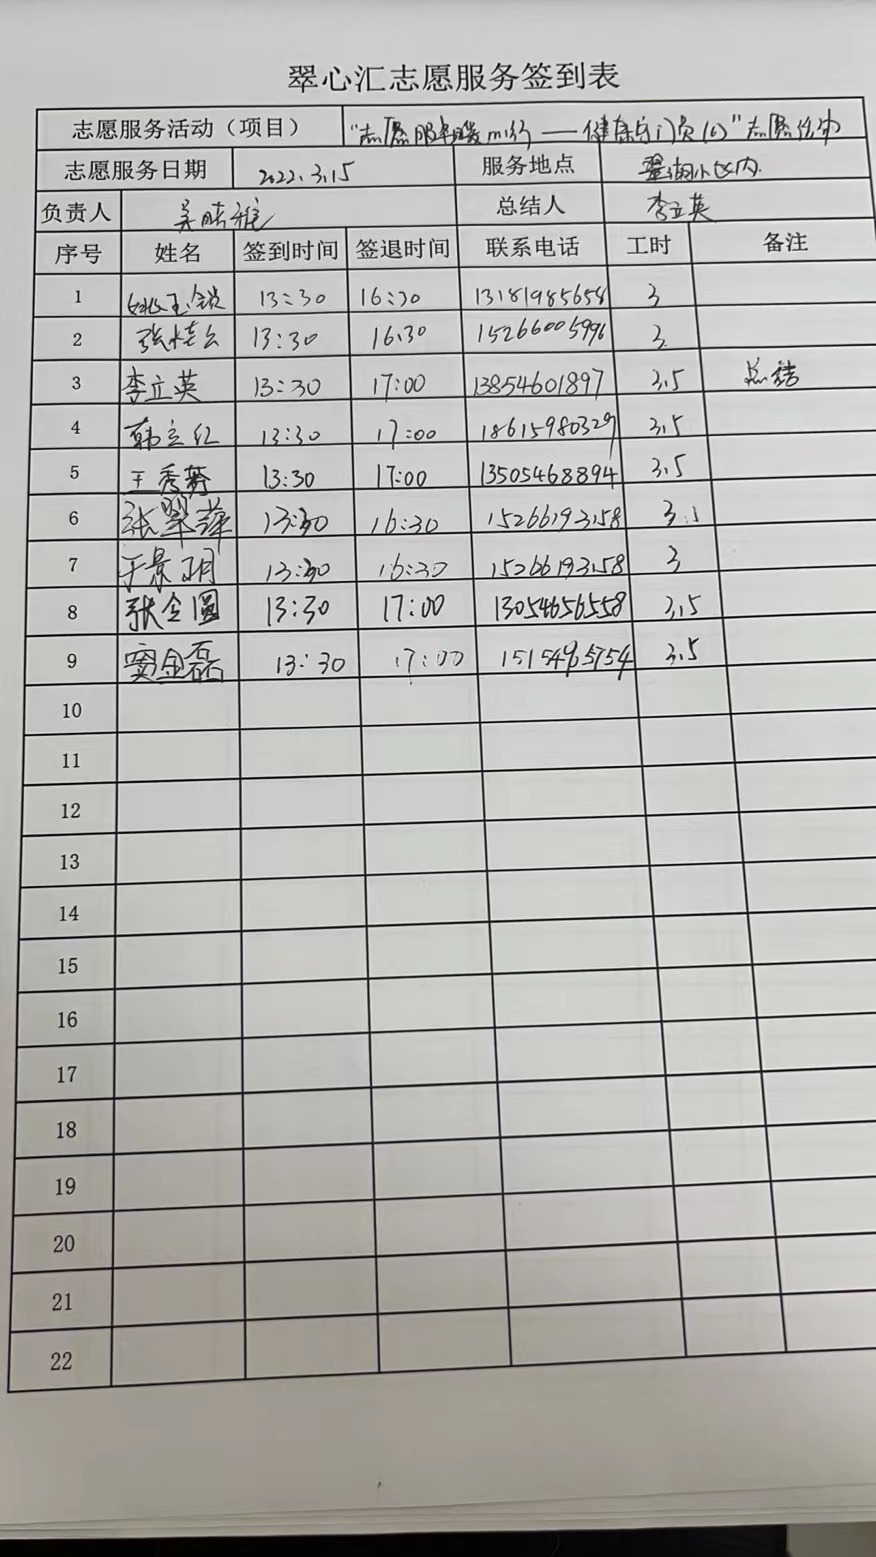 翠心汇志愿服务签到表
志愿服务活动（项目） "志愿服务暖心行——健康守门员(6)"志愿活动
志愿服务日期 2022.3.15 服务地点 翠湖小区内
负责人 吴晓雅 总结人 李立英
序号 姓名 签到时间 签退时间 联系电话 工时 备注
1 姚玉锁 13:30 16:30 13181985658 3
2 张桂云 13:30 16:30 15266005996 3
3 李立英 13:30 17:00 13854601897 3.5 总结
4 韩立红 13:30 17:00 18615980329 3.5
5 王秀芬 13:30 17:00 13505468894 3.5
6 张翠萍 13:30 16:30 15266193158 3
7 于景明 13:30 16:30 15266193158 3
8 张会圆 13:30 17:00 13054656558 3.5
9 窦金磊 13:30 17:00 15154965754 3.5
10
11
12
13
14
15
16
17
18
19
20
21
22